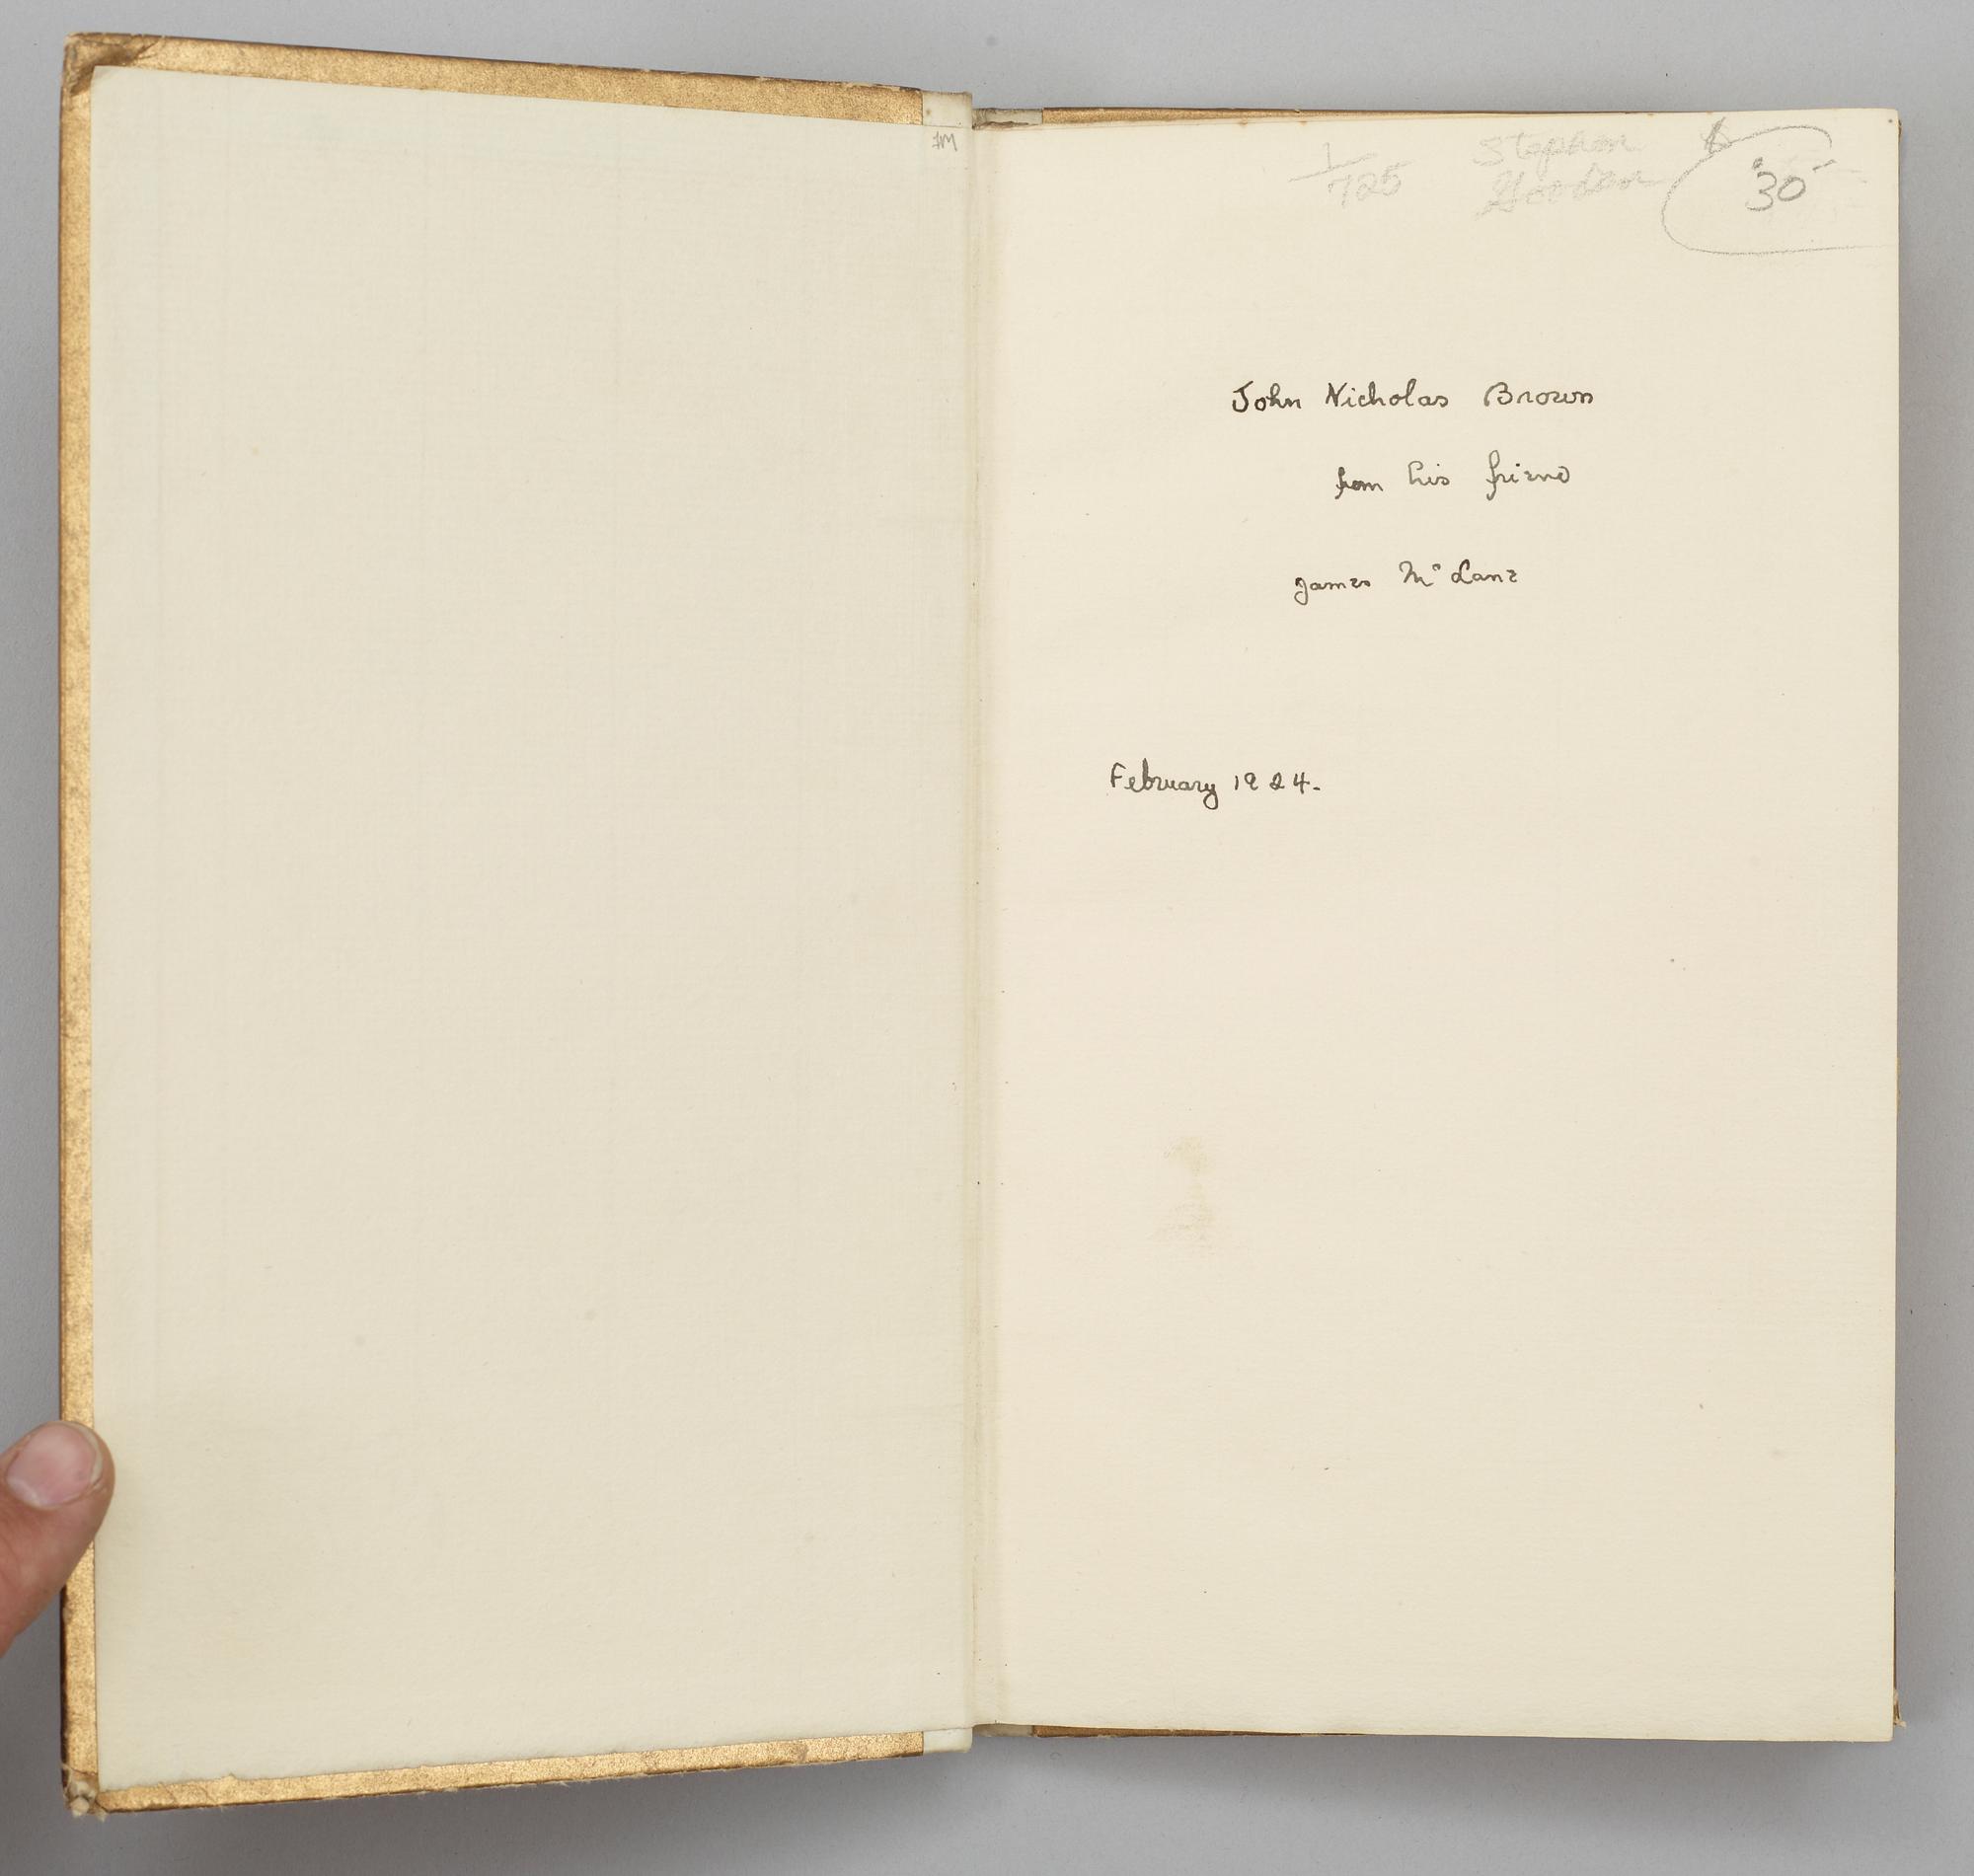 1/725
Stephen
Gooden
30-
John Nicholas Brown
from his friend
James McLane
February 1924.